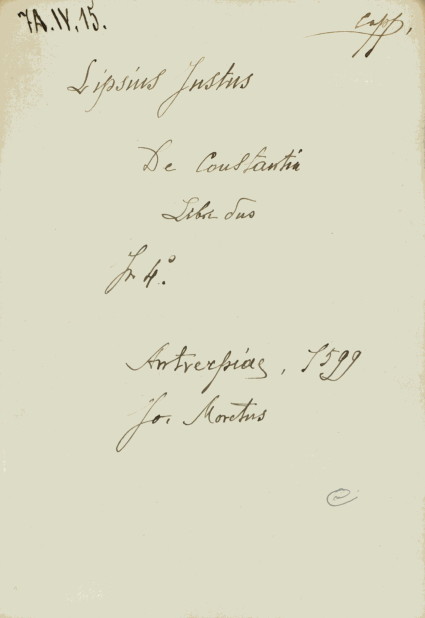 7A.IV.15.
Lipsius Justus
De Constantia
Libri duo
In 4°.
Antverpiae, 1599
Jo. Moretus